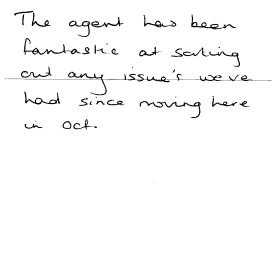 The agent has been
fantastic at sorting
out any issue's we've
had since moving here
in Oct.